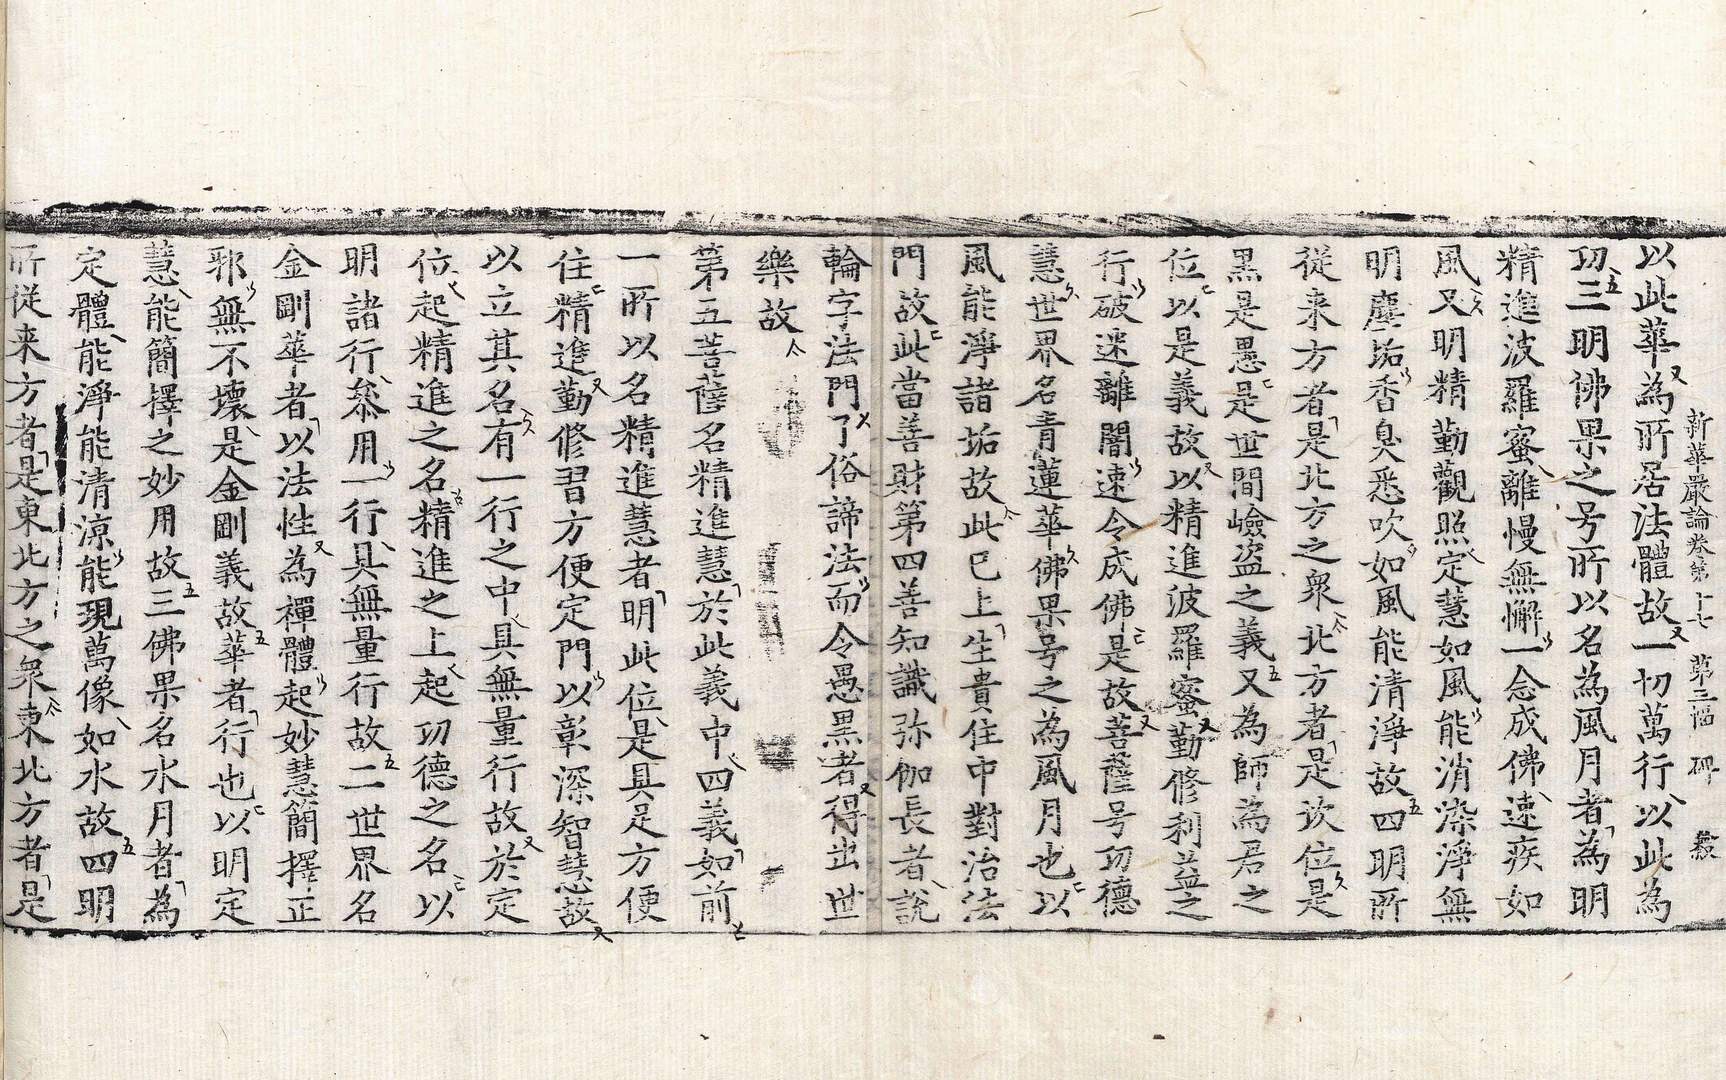 新華嚴論卷第十七　第三幅　碑
以此華為所居法體故一切萬行以此為
功三明佛果之号所以名為風月者為明
精進波羅蜜離慢無懈一念成佛速疾如
風又明精勤觀照定慧如風能消染淨無
明塵垢香臭悉吹如風能清淨故四明所
從来方者是北方之衆北方者是坎位是
黒是愚是世間嶮盗之義又為師為君之
位以是義故以精進波羅蜜勤修利益之
行破迷離闇速令成佛是故菩薩号功德
慧世界名青蓮華佛果号之為風月也以
風能淨諸垢故此已上生貴住中對治法
門故此當善財第四善知識弥伽長者說
輪字法門了俗諦法而令愚黒者得出世
樂故
第五菩薩名精進慧於此義中四義如前
一所以名精進慧者明此位是具足方便
住精進勤修習方便定門以彰深智慧故
以立其名有一行之中具無量行故於定
位起精進之名精進之上起功德之名以
明諸行叅用一行具無量行故二世界名
金剛華者以法性為禪體起妙慧簡擇正
邪無不壞是金剛義故華者行也以明定
慧能簡擇之妙用故三佛果名水月者為
定體能淨能清涼能現萬像如水故四明
所從来方者是東北方之衆東北方者是